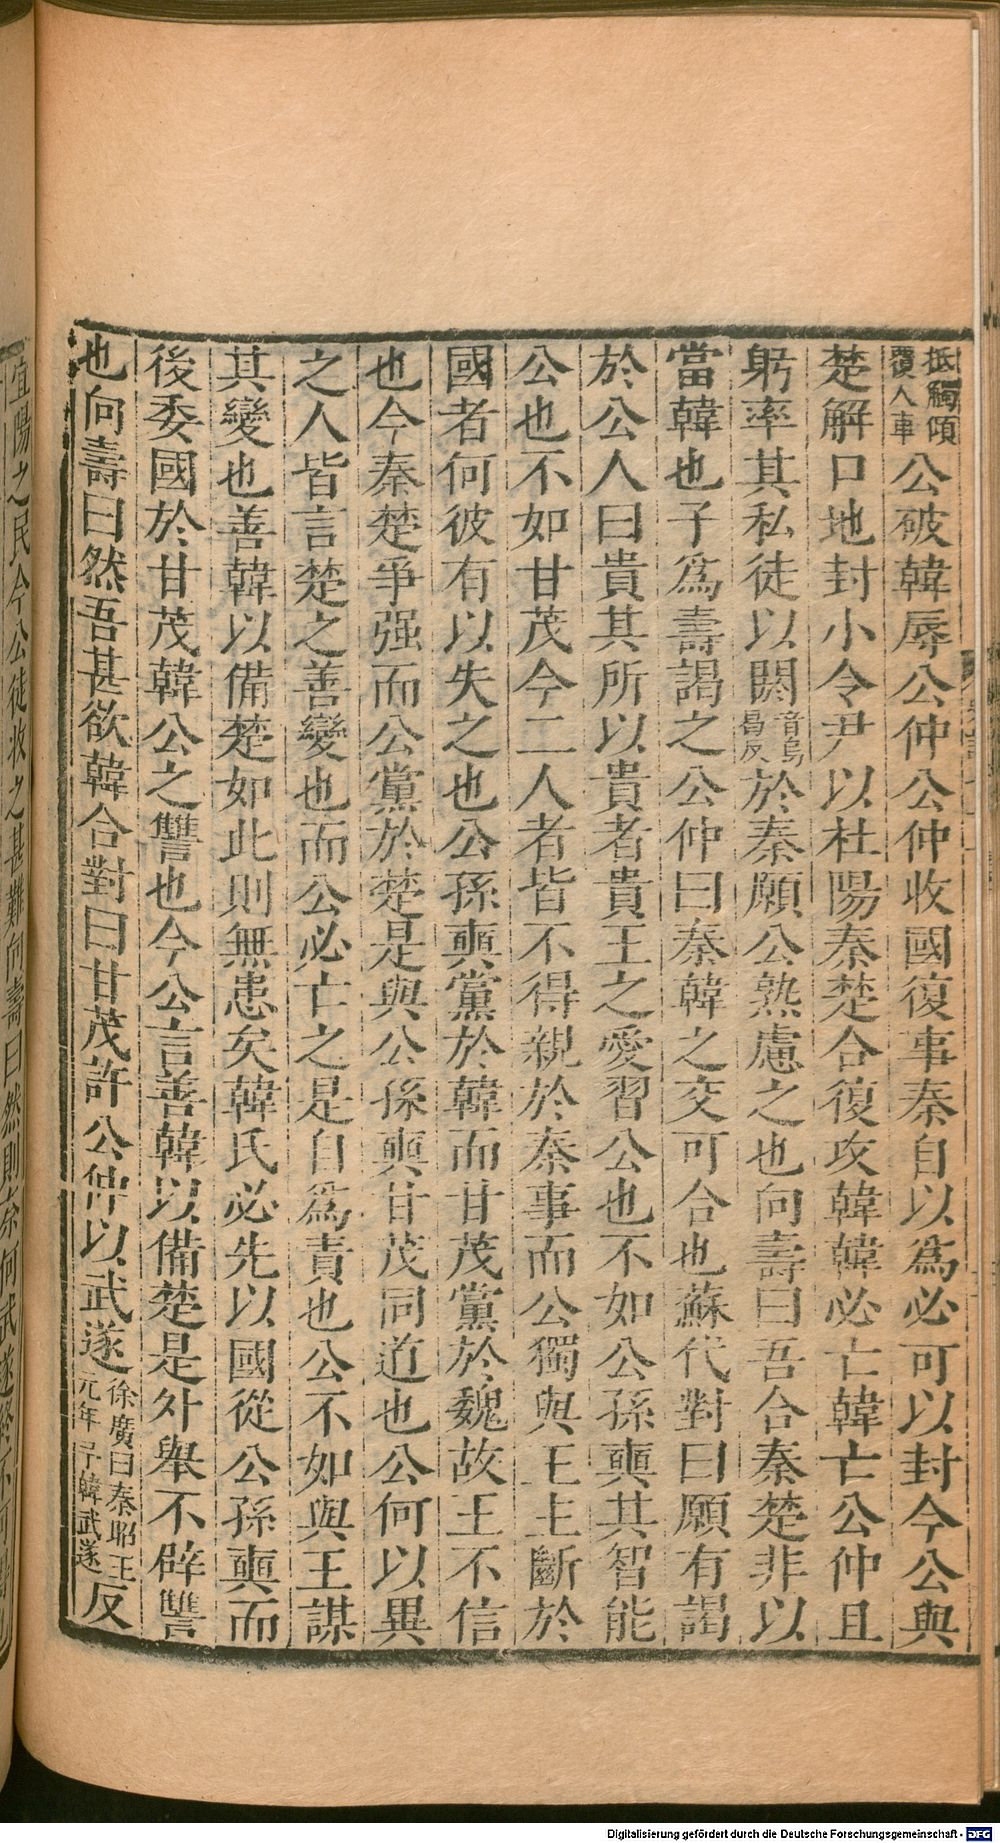 抵觸傾覆人車公破韓辱公仲公仲收國復事秦自以爲必可以封今公與
楚解口地封小令尹以杜陽秦楚合復攻韓韓必亡韓亡公仲且
躬率其私徒以閼音烏曷反於秦願公熟慮之也向壽曰吾合秦楚非以
當韓也子爲壽謁之公仲曰秦韓之交可合也蘇代對曰願有謁
於公人曰貴其所以貴者貴王之愛習公也不如公孫奭其智能
公也不如甘茂今二人者皆不得親於秦事而公獨與王主斷於
國者何彼有以失之也公孫奭黨於韓而甘茂黨於魏故王不信
也今秦楚爭强而公黨於楚是與公孫奭甘茂同道也公何以異
之人皆言楚之善變也而公必亡之是自爲責也公不如與王謀
其變也善韓以備楚如此則無患矣韓氏必先以國從公孫奭而
後委國於甘茂韓公之讐也今公言善韓以備楚是外舉不辟讐
也向壽曰然吾甚欲韓合對曰甘茂許公仲以武遂徐廣曰秦昭王元年予韓武遂反
宜陽之民今公徒收之甚難向壽曰然則奈何武遂終不可得
Digitalisierung gefördert durch die Deutsche Forschungsgemeinschaft - DFG